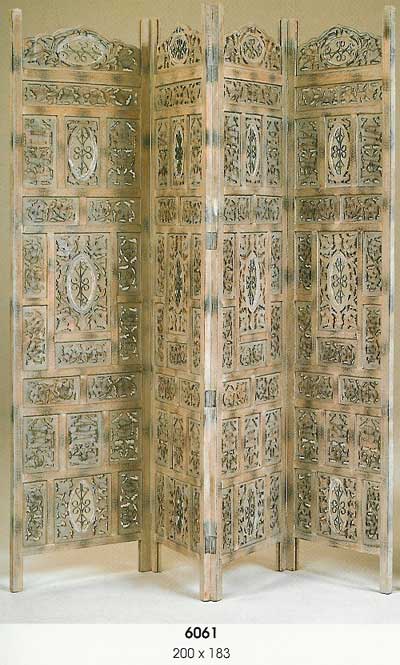 6061
200 x 183